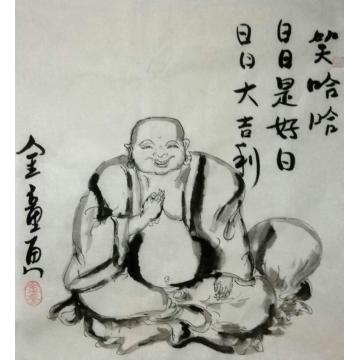 笑哈哈
日日是好日
日日大吉利
金童